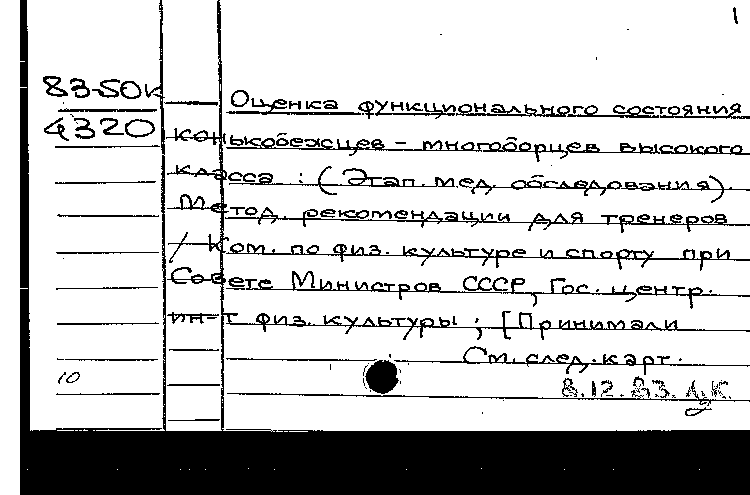 1
83-50к
4320
Оценка функционального состояния
конькобежцев - многоборцев высокого
класса : (Этап. мед. обследования).
Метод. рекомендации для тренеров
/ Ком. по физ. культуре и спорту при
Совете Министров СССР, Гос. центр.
ин-т физ. культуры ; [Принимали
См. след. карт.
10
8.12.83.